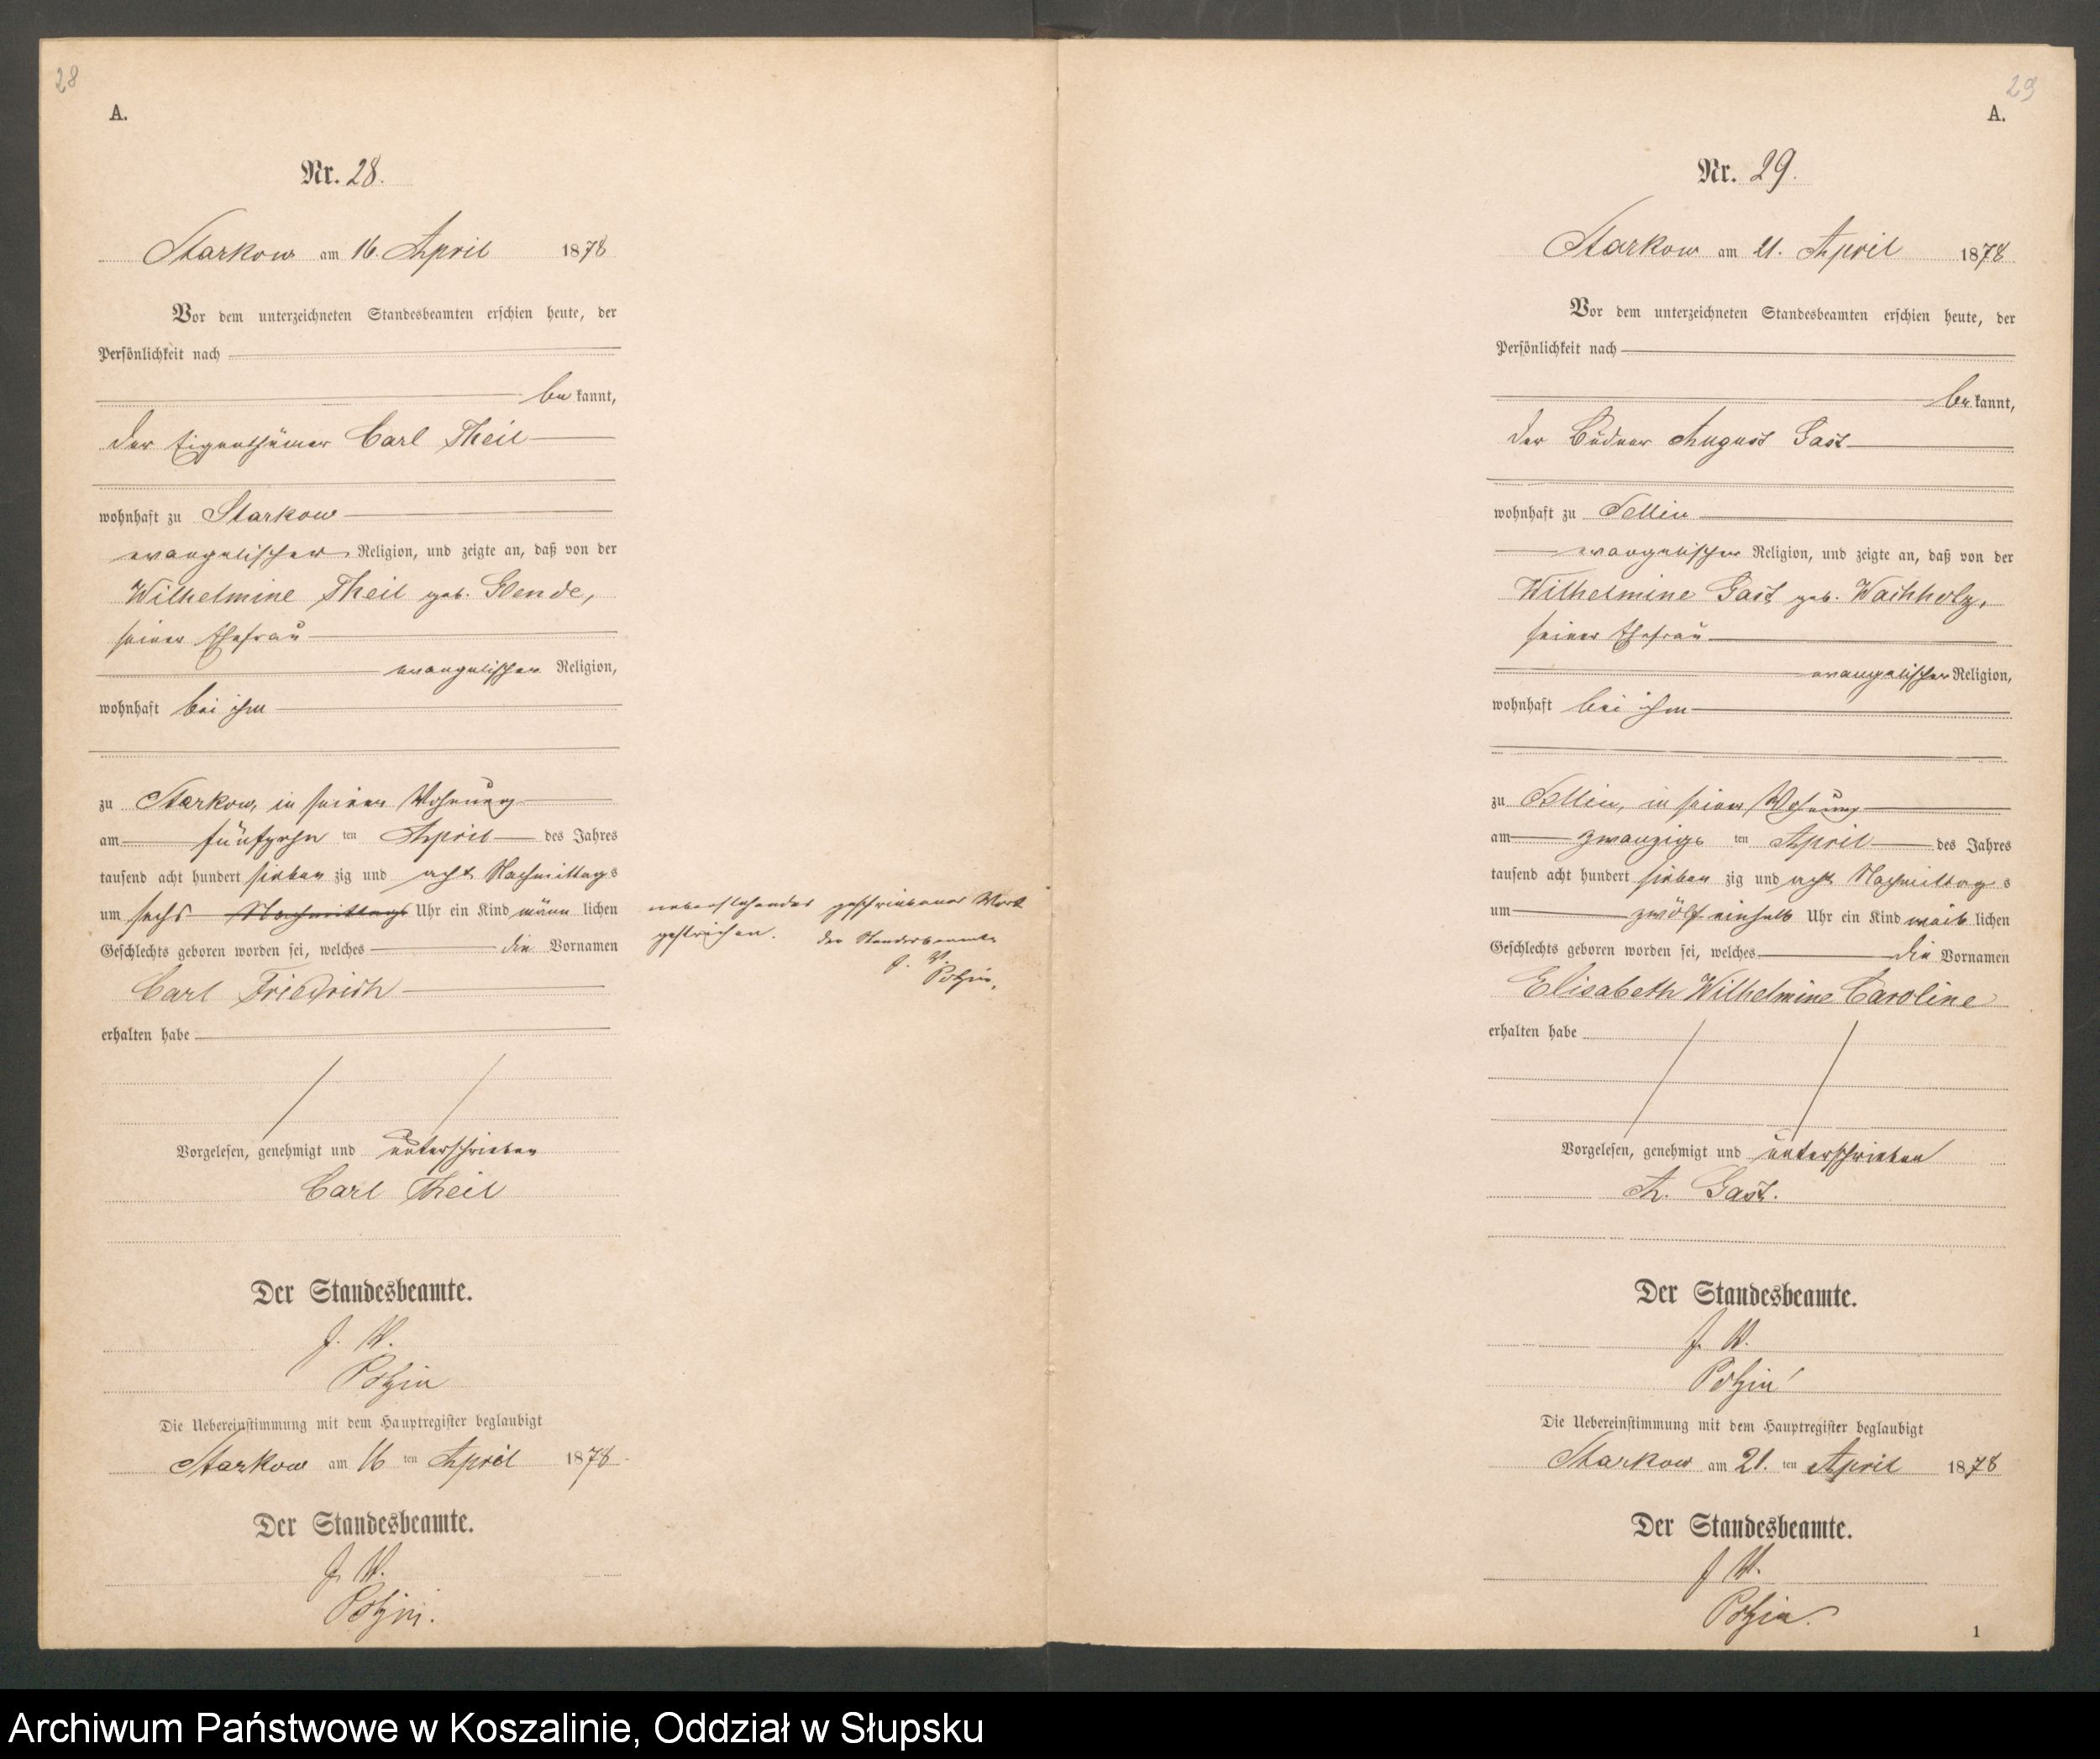 28
A.
Nr. 28.
Starkow am 16. April 1878
Vor dem unterzeichneten Standesbeamten erschien heute, der
Persönlichkeit nach
be kannt,
der Eigenthümer Carl Theil
wohnhaft zu Starkow
evangelischer Religion, und zeigte an, daß von der
Wilhelmine Theil geb. Glende,
seiner Ehefrau
evangelischer Religion,
wohnhaft bei ihm
zu Starkow, in seiner Wohnung
am fünfzehn ten April des Jahres
tausend acht hundert sieben zig und acht Nachmittags
um sechs Nachmittags Uhr ein Kind männ lichen
Geschlechts geboren worden sei, welches die Vornamen
Carl Friedrich
erhalten habe
Vorgelesen, genehmigt und unterschrieben
Carl Theil
Der Standesbeamte.
J. V.
Potzin
Die Uebereinstimmung mit dem Hauptregister beglaubigt
Starkow am 16 ten April 1878
Der Standesbeamte.
J. V.
Potzin.
nebenstehendes geschriebenes Wort
gestrichen. Der Standesbeamte
J. V.
Potzin.
29
A.
Nr. 29.
Starkow am 21. April 1878
Vor dem unterzeichneten Standesbeamten erschien heute, der
Persönlichkeit nach
be kannt,
der Büdner August Gast
wohnhaft zu Sellin
evangelischer Religion, und zeigte an, daß von der
Wilhelmine Gast geb. Wachholz,
seiner Ehefrau
evangelischer Religion,
wohnhaft bei ihm
zu Sellin, in seiner Wohnung
am zwanzigs ten April des Jahres
tausend acht hundert sieben zig und acht Nachmittag s
um zwölf einhalb Uhr ein Kind weib lichen
Geschlechts geboren worden sei, welches die Vornamen
Elisabeth Wilhelmine Caroline
erhalten habe
Vorgelesen, genehmigt und unterschrieben
A. Gast.
Der Standesbeamte.
J. V.
Potzin
Die Uebereinstimmung mit dem Hauptregister beglaubigt
Starkow am 21. ten April 1878
Der Standesbeamte.
J. V.
Potzin.
1
Archiwum Państwowe w Koszalinie, Oddział w Słupsku